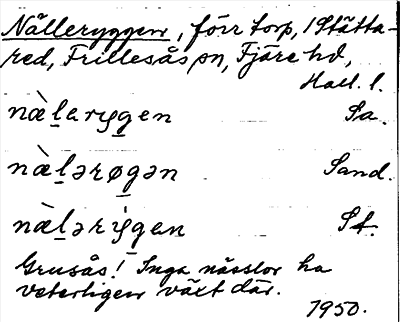 Nälleryggen, förr torp, i Stätta-
red, Frillesås sn, Fjäre hd,
Hall. l.
næ̀l̠arygen Sa.
næ̀l̠ərøgən Sand.
næ̀l̠ərygen St.
Grusås! Inga nässlor ha
veterligen växt där.
1950.